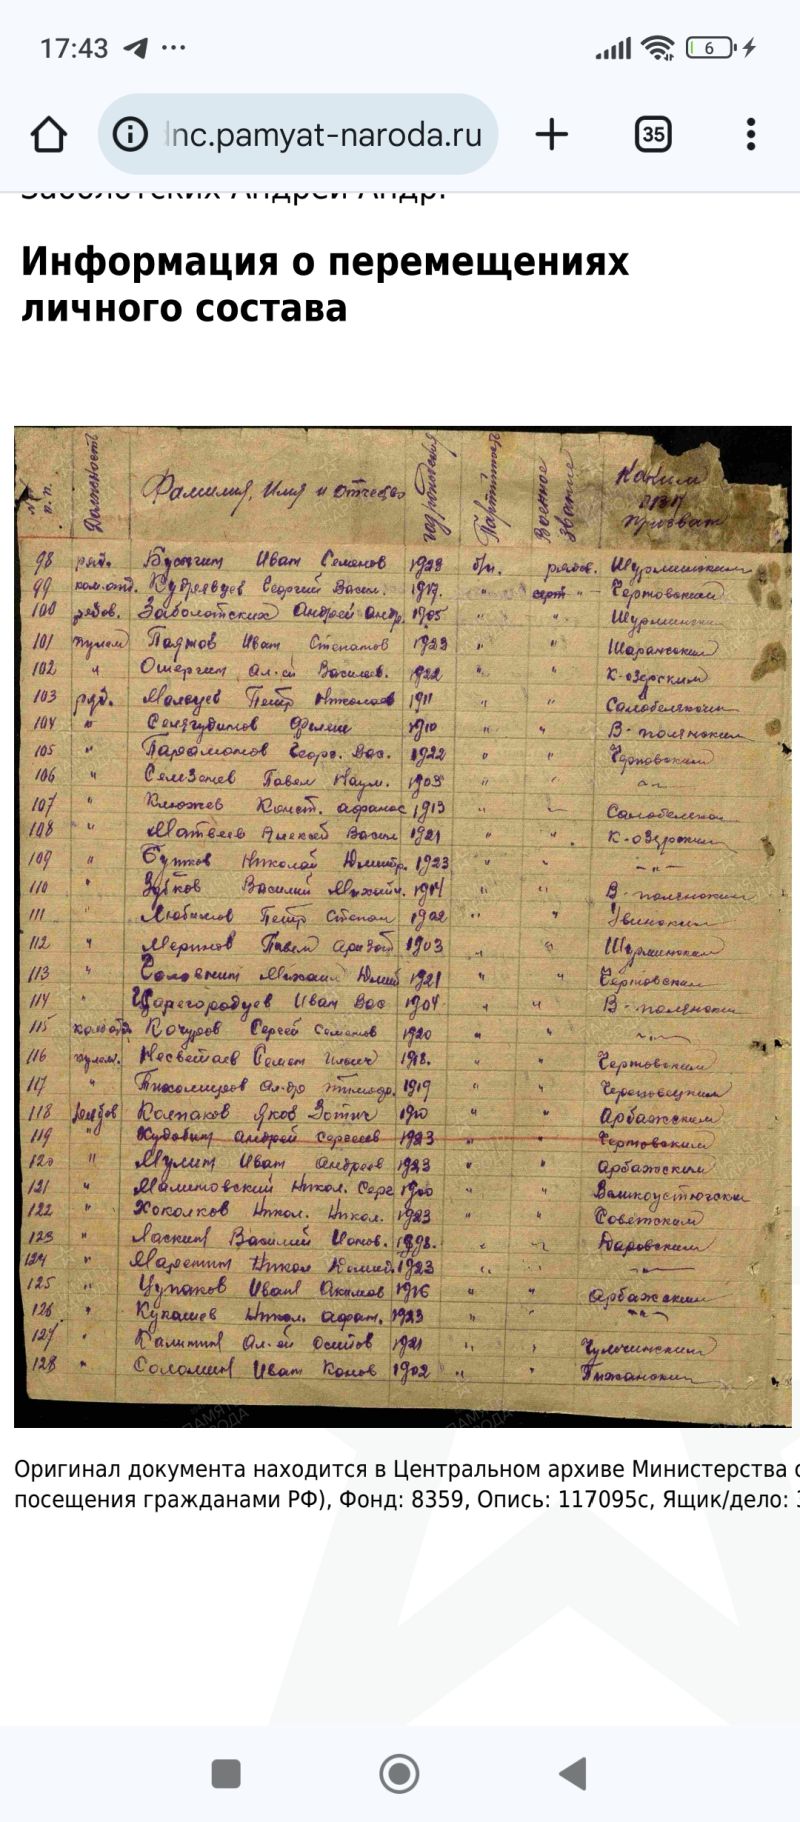 17:43
6
dnc.pamyat-naroda.ru
35
Заболотских Андрей Андр.
Информация о перемещениях
личного состава
№ п.п. Должность Фамилия, Имя и отчество год рождения Партийность Военное звание Каким РВК призван
98 ряд. Иван Семенов 1923 б/п. рядов.
99 ком.отд. Кудрявцев Георгий Васил. 1917. " серж " Чертовским
100 рядов. Заболотских Андрей Андр. 1905 " "
101 Иван Степанов 1923 " " Шарангским
102 " Ошергин Ал-ей Васильев. 1922 " " К-озерским
103 ряд. Петр Николаев 1911 " "
104 " 1910 " " В-полянским
105 " Парамонов Георг. Вас. 1922 " " Чертовским
106 " Селезенев Павел Наум. 1903 " " -"-
107 " Клюжев Конст. Афанас 1913 " "
108 " Матвеев Алексей Васил 1921 " " К-озерским
109 " Бутков Николай Дмитр. 1923 " " -"-
110 " Зубков Василий Михайл. 1904 " " В-полянским
111 " Любимов Петр Степан 1902 " " Увинским
112 " Меринов Павел 1903 " "
113 " Михаил Дмит 1921 " " Чертовским
114 " Царегородцев Иван Вас 1904 " " В-полянским
115 Кочуров Сергей Семенов 1920 " " -"-
116 Несветаев Семен Ильич 1918. " " Чертовским
117 " Тихомиров Ал-др 1919 " " Череповецким
118 Колпаков Яков Зотич 1910 " " Арбажским
119 " Худобин Андрей Сергеев 1923 " " Чертовским
120 " Мулин Иван Андреев 1923 " " Арбажским
121 " Малиновский Никол. Серг 1900 " " Великоустюгским
122 " Хохолков Никол. Никол. 1923 " " Советским
123 " Ласкин Василий Ионов. 1898. " " Даровским
124 " Никол 1923 " " -"-
125 " Цупаков Иван Акимов 1916 " " Арбажским
126 " Кукашев Никол. Афан. 1923 " " -"-
127 " Калинин Ал-ей Осипов 1921 " "
128 " Соломин Иван Конов 1902 " " Пижанским
Оригинал документа находится в Центральном архиве Министерства
посещения гражданами РФ), Фонд: 8359, Опись: 117095с, Ящик/дело: